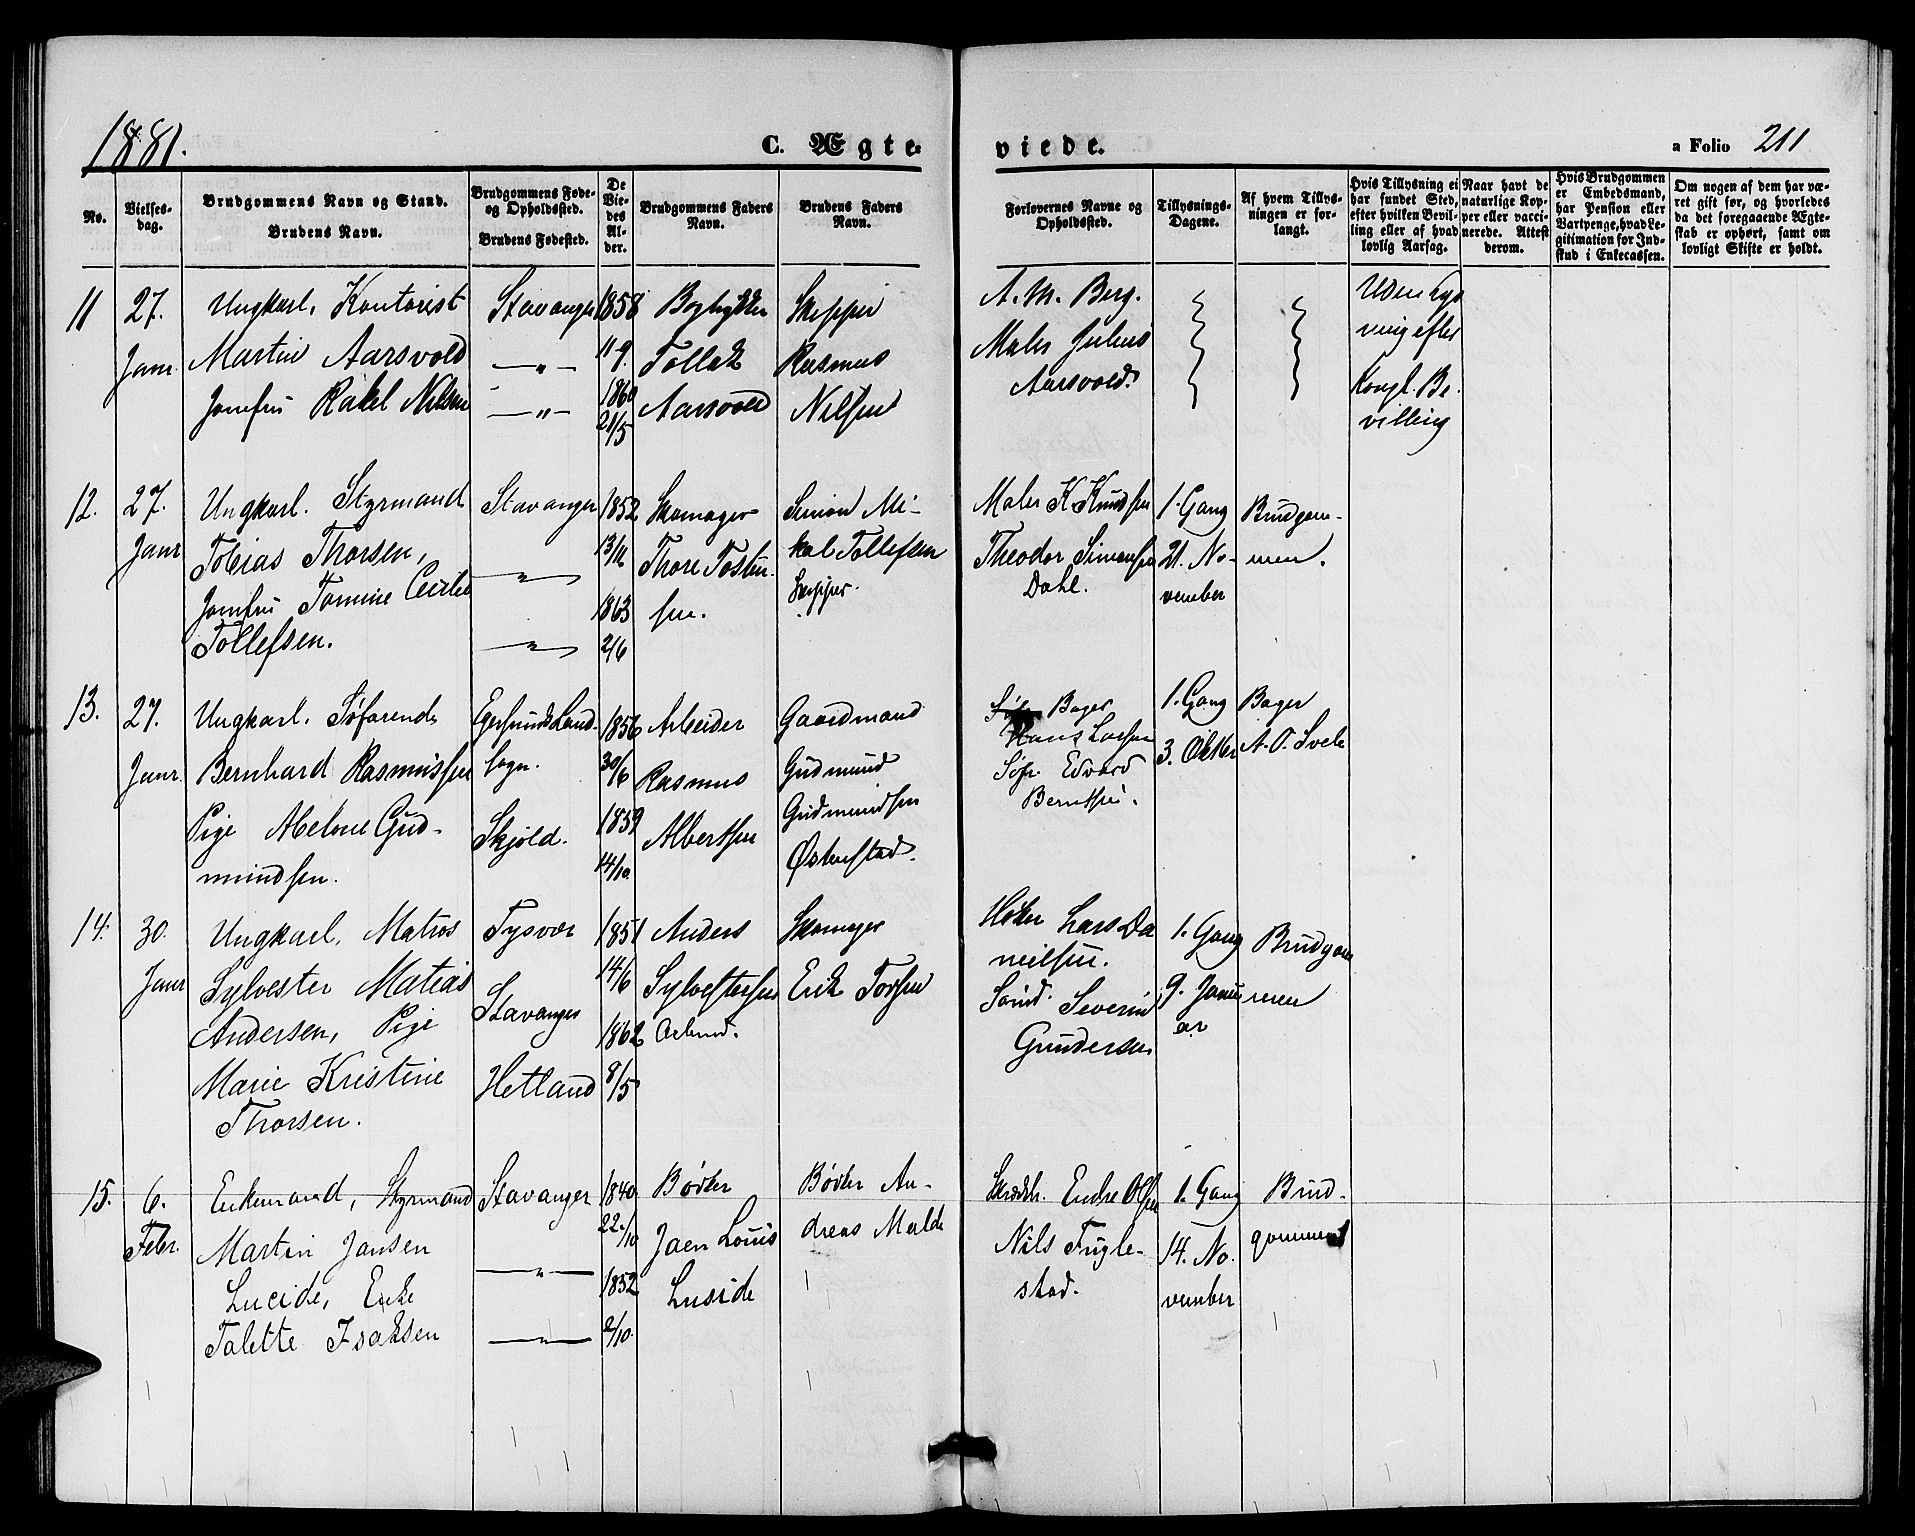 1881.
C. Ægte=
viede.
a Folio 211
No.
Vielses-
dag.
Brudgommens Navn og Stand.
Brudens Navn.
Brudgommens Føde-
og Opholdssted.
Brudens Fødested.
De
Vie-
des
Al-
der.
Brudgommens Faders
Navn.
Brudens Faders
Navn.
Forlovernes Navne og
Opholdssted.
Tillysnings-
Dagene.
Af hvem Tillys-
ningen er for-
langt.
Hvis Tillysning ei
har fundet Sted,
efter hvilken Bevil-
ling eller af hvad
lovlig Aarsag.
Naar havt de
naturlige Kop-
per eller vacci-
nerede. Attest
derom.
Hvis Brudgommen
er Embedsmand,
har Pension eller
Vartpenge, hvad Le-
gitimation for Ind-
skud i Enkecassen.
Om nogen af dem har væ-
ret gift før, og hvorledes
da det foregaaende Ægte-
skab er ophørt, samt om
lovligt Skifte er holdt.
11
27.
Janr.
Ungkarl. Kontorist
Martin Aarsvold
Jomfru Rakel Nilsen
Stavanger
— " —
— " —
1858
11/9.
1860
21/5
Tollak
Aarsvold
Skipper
Rasmus
Nilsen
A. M. Berg.
Maler Julius
Aarsvold.
Uden Lys
ning efter
Kongl. Be-
villing
12.
27.
Janr
Ungkarl. Styrmand
Tobias Thorsen,
Jomfru Tomine Cecilie
Tollefsen.
Stavanger
— " —
— " —
1852
13/11
1863
2/6
Skomager
Thore Tosten-
sen.
Simon Mi-
kal Tollefsen
Skipper.
Maler K. Knudsen
Theodor Simonsen
Dahl.
1. Gang
21. No-
vember
Brudgom-
men.
13.
27.
Janr.
Ungkarl. Søfarende
Bernhard Rasmussen
Pige Abelone Gud-
mundsen.
Egersunds Land-
sogn.
Skjold.
1856
30/6
1859
14/10.
Arbeider
Rasmus
Albertsen
Gaardmand
Gudmund
Gudmundsen
Østenstad.
Bager
Hans Larsen
Søfr. Edvard
Berntsen.
1. Gang
3. Oktber
Bager
A. O. Svela
14.
30.
Janr
Ungkarl. Matros
Sylvester Matias
Andersen, Pige
Marie Kristine
Thorsen.
Tysvær
Stavanger
Hetland
1851
14/6
1862
8/5
Anders
Sylvestersen
Arbmd.
Skomager
Erik Torsen
Høker Lars Da
nielsen.
Severin
Gundersen
1. Gang
9. Janu
ar
Brudgom
men
15.
6.
Febr.
Enkemand, Styrmand
Martin Jansen
Lucide, Enke
Talette Isaksen
Stavanger
— " —
— " —
1840
22/10
1852
2/10.
Bødker
Jaen Louis
Luside
Bødker An-
dreas Malde
Skrædr. Endre Olsen
Nils Fugle-
stad.
1. Gang
14. No-
vember
Brud-
gommen